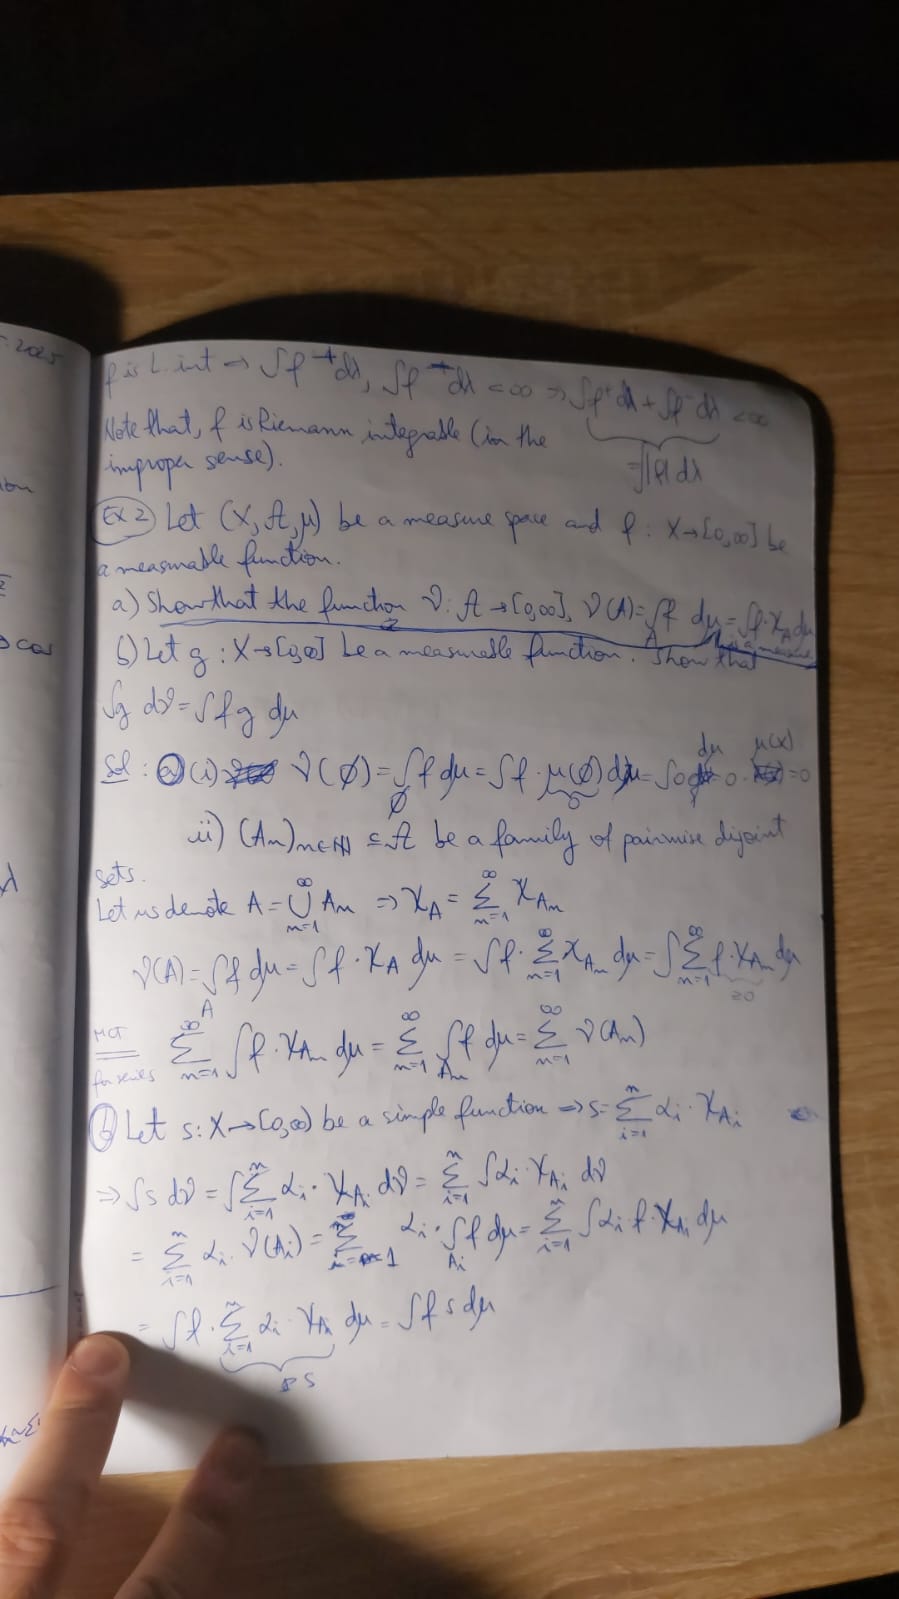 . 2025
f is L. int → ∫f⁺dλ, ∫f⁻dλ < ∞ ⇒ ∫f⁺dλ + ∫f⁻dλ < ∞
Note that, f is Riemann integrable (in the
improper sense).
= ∫|f| dλ
Ex 2 Let (X, A, μ) be a measure space and f : X → [0,∞] be
a measurable function.
a) Show that the function ν: A → [0,∞], ν(A) = ∫_A f dμ = ∫f·χ_A dμ is a measure
b) Let g : X → [0,∞] be a measurable function. Show that
∫g dν = ∫f g dμ
Sol : a) (i) ν(∅) = ∫_∅ f dμ = ∫f · μ(∅) dμ = ∫0 dμ = 0 · μ(X) = 0
ii) (A_n)_{n∈ℕ} ⊆ A be a family of pairwise disjoint
sets.
Let us denote A = ⋃_{n=1}^∞ A_n ⇒ χ_A = Σ_{n=1}^∞ χ_{A_n}
ν(A) = ∫_A f dμ = ∫f · χ_A dμ = ∫f · Σ_{n=1}^∞ χ_{A_n} dμ = ∫Σ_{n=1}^∞ f · χ_{A_n} dμ
≥0
MCT for series = Σ_{n=1}^∞ ∫f · χ_{A_n} dμ = Σ_{n=1}^∞ ∫_{A_n} f dμ = Σ_{n=1}^∞ ν(A_n)
b) Let s: X → [0,∞) be a simple function ⇒ s = Σ_{i=1}^n α_i · χ_{A_i}
⇒ ∫s dν = ∫Σ_{i=1}^n α_i · χ_{A_i} dν = Σ_{i=1}^n ∫α_i · χ_{A_i} dν
= Σ_{i=1}^n α_i · ν(A_i) = Σ_{i=1}^n α_i · ∫_{A_i} f dμ = Σ_{i=1}^n ∫α_i f · χ_{A_i} dμ
= ∫f · Σ_{i=1}^n α_i · χ_{A_i} dμ = ∫f s dμ
s